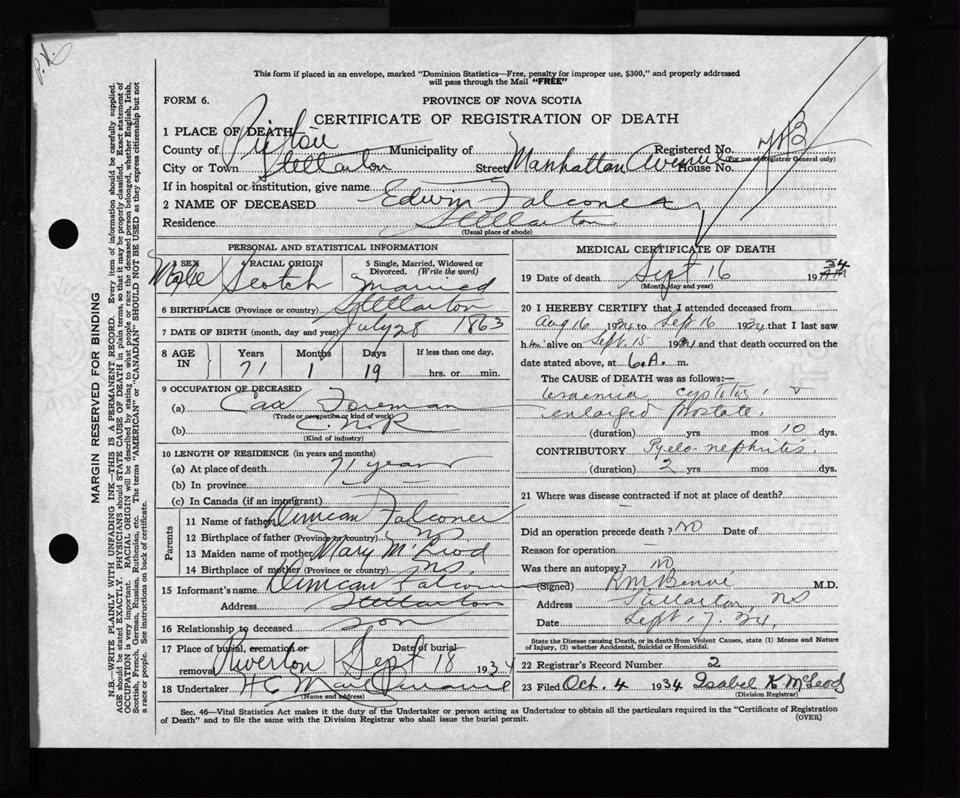 This form if placed in an envelope, marked "Dominion Statistics—Free, penalty for improper use, $300," and properly addressed
will pass through the Mail "FREE"
FORM 6.
PROVINCE OF NOVA SCOTIA
CERTIFICATE OF REGISTRATION OF DEATH
1 PLACE OF DEATH
County of Pictou Municipality of Registered No.
(For use of Registrar General only)
City or Town Stellarton Street Manhattan Avenue House No.
If in hospital or institution, give name
2 NAME OF DECEASED Edwin Falconer
Residence Stellarton
(Usual place of abode)
PERSONAL AND STATISTICAL INFORMATION
3 SEX Male 4 RACIAL ORIGIN Scotch 5 Single, Married, Widowed or Divorced. (Write the word) Married
6 BIRTHPLACE (Province or country) Stellarton
7 DATE OF BIRTH (month, day and year) July 28 1863
8 AGE IN Years 71 Months 1 Days 19 If less than one day, hrs. or min.
9 OCCUPATION OF DECEASED
(a) Car Foreman
(Trade or occupation or kind of work)
(b) C.N.R
(Kind of industry)
10 LENGTH OF RESIDENCE (in years and months)
(a) At place of death 71 years
(b) In province
(c) In Canada (if an immigrant)
Parents
11 Name of father Duncan Falconer
12 Birthplace of father (Province or country) NS
13 Maiden name of mother Mary McLeod
14 Birthplace of mother (Province or country) NS.
15 Informant's name Duncan Falconer
Address Stellarton
16 Relationship to deceased Son
17 Place of burial, cremation or removal Riverton Date of burial Sept 18 1934
18 Undertaker H C
(Name and address)
MEDICAL CERTIFICATE OF DEATH
19 Date of death Sept 16 1934 AM
(Month, day and year)
20 I HEREBY CERTIFY that I attended deceased from
Aug 16 1934 to Sept 16 1934 that I last saw
him alive on Sept. 15 1934 and that death occurred on the
date stated above, at 6 A. m.
The CAUSE of DEATH was as follows:—
Uraemia cystitis &
enlarged prostate.
(duration) yrs. mos 10 dys.
CONTRIBUTORY Pyelo-nephritis.
(duration) 2 yrs. mos dys.
21 Where was disease contracted if not at place of death?
Did an operation precede death? NO Date of
Reason for operation
Was there an autopsy? NO
(Signed) M.D.
Address Stellarton, NS
Date Sept. 17. 34.
State the Disease causing Death, or in death from Violent Causes, state (1) Means and Nature
of Injury, (2) whether Accidental, Suicidal or Homicidal.
22 Registrar's Record Number 2
23 Filed Oct. 4 1934 Isabel K McLeod
(Division Registrar)
Sec. 46—Vital Statistics Act makes it the duty of the Undertaker or person acting as Undertaker to obtain all the particulars required in the "Certificate of Registration
of Death" and to file the same with the Division Registrar who shall issue the burial permit.
(OVER)
MARGIN RESERVED FOR BINDING
N.B.—WRITE PLAINLY WITH UNFADING INK—THIS IS A PERMANENT RECORD. Every item of information should be carefully supplied.
AGE should be stated EXACTLY. PHYSICIANS should STATE CAUSE OF DEATH in plain terms, so that it may be properly classified. Exact statement of
OCCUPATION is very important. RACIAL ORIGIN will be described by stating to what people or race the deceased person belonged, whether English, Irish,
Scottish, French, German, Russian, Ruthenian, etc. The terms "AMERICAN" or "CANADIAN" SHOULD NOT BE USED as they express citizenship but not
a race or people. See instructions on back of certificate.